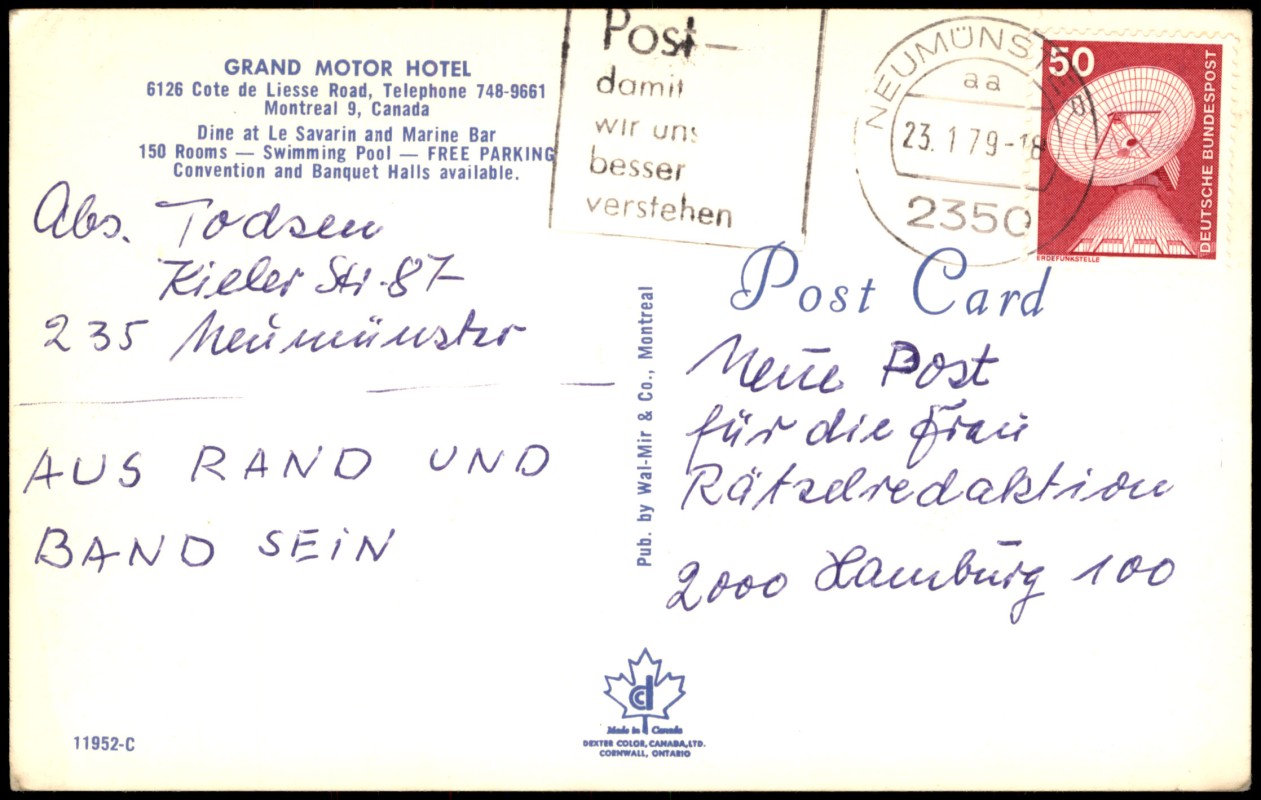 GRAND MOTOR HOTEL
6126 Cote de Liesse Road, Telephone 748-9661
Montreal 9, Canada
Dine at Le Savarin and Marine Bar
150 Rooms — Swimming Pool — FREE PARKING
Convention and Banquet Halls available.
Abs. Todsen
Kieler Str. 87
235 Neumünster
AUS RAND UND
BAND SEIN
11952-C
Post-
damit
wir uns
besser
verstehen
NEUMÜNSTER
aa
23.1.79-18
2350
50
DEUTSCHE BUNDESPOST
ERDEFUNKSTELLE
Post Card
Neue Post
für die Frau
Rätselredaktion
2000 Hamburg 100
Pub. by Wal-Mir & Co., Montreal
cd
Made in Canada
DEXTER COLOR, CANADA, LTD.
CORNWALL, ONTARIO